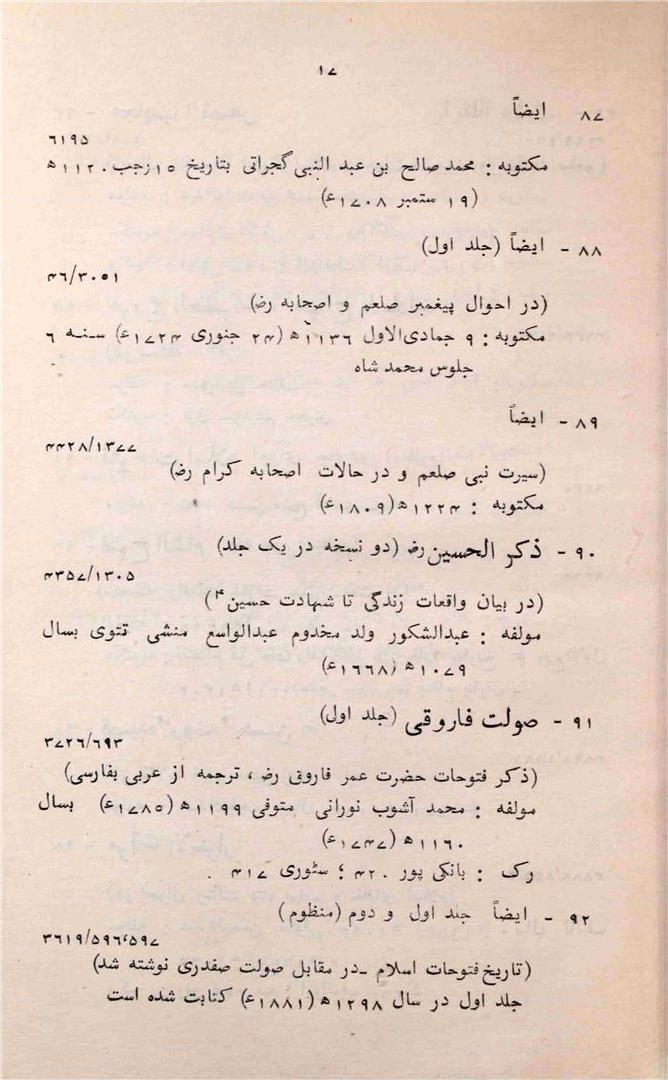 ۱۷
۸۷ ایضاً
۶۱۹۵
مکتوبہ : محمد صالح بن عبد النبی گجراتی بتاریخ ۱۵ رجب ۱۱۲۰ھ
(۱۹ ستمبر ۱۷۰۸ع)
۸۸ - ایضاً (جلد اول)
۴۶/۳۰۵۱
(در احوال پیغمبر صلعم و اصحابہ رض)
مکتوبہ : ۹ جمادی‌الاول ۱۱۳۶ھ (۲۴ جنوری ۱۷۲۴ع) سنہ ۶
جلوس محمد شاہ
۸۹ - ایضاً
۴۴۲۸/۱۳۷۷
(سیرت نبی صلعم و در حالات اصحابہ کرام رض)
مکتوبہ : ۱۲۲۴ھ (۱۸۰۹ع)
۹۰ - ذکر الحسین رض (دو نسخہ در یک جلد)
۴۳۵۷/۱۳۰۵
(در بیان واقعات زندگی تا شہادت حسین؏)
مولفہ : عبدالشکور ولد مخدوم عبدالواسع منشی تتوی بسال
۱۰۷۹ھ (۱۶۶۸ع)
۹۱ - صولت فاروقی (جلد اول)
۳۷۲۶/۶۹۳
(ذکر فتوحات حضرت عمر فاروق رض، ترجمہ از عربی بفارسی)
مولفہ : محمد آشوب نورانی متوفی ۱۱۹۹ھ (۱۷۸۵ع) بسال
۱۱۶۰ھ (۱۷۴۷ع)
رک : بانکی پور ۴۲۰ ؛ سٹوری ۴۱۷ .
۹۲ - ایضاً جلد اول و دوم (منظوم)
۳۶۱۹/۵۹۶،۵۹۷
(تاریخ فتوحات اسلام ـ در مقابل صولت صفدری نوشتہ شد)
جلد اول در سال ۱۲۹۸ھ (۱۸۸۱ع) کتابت شدہ است